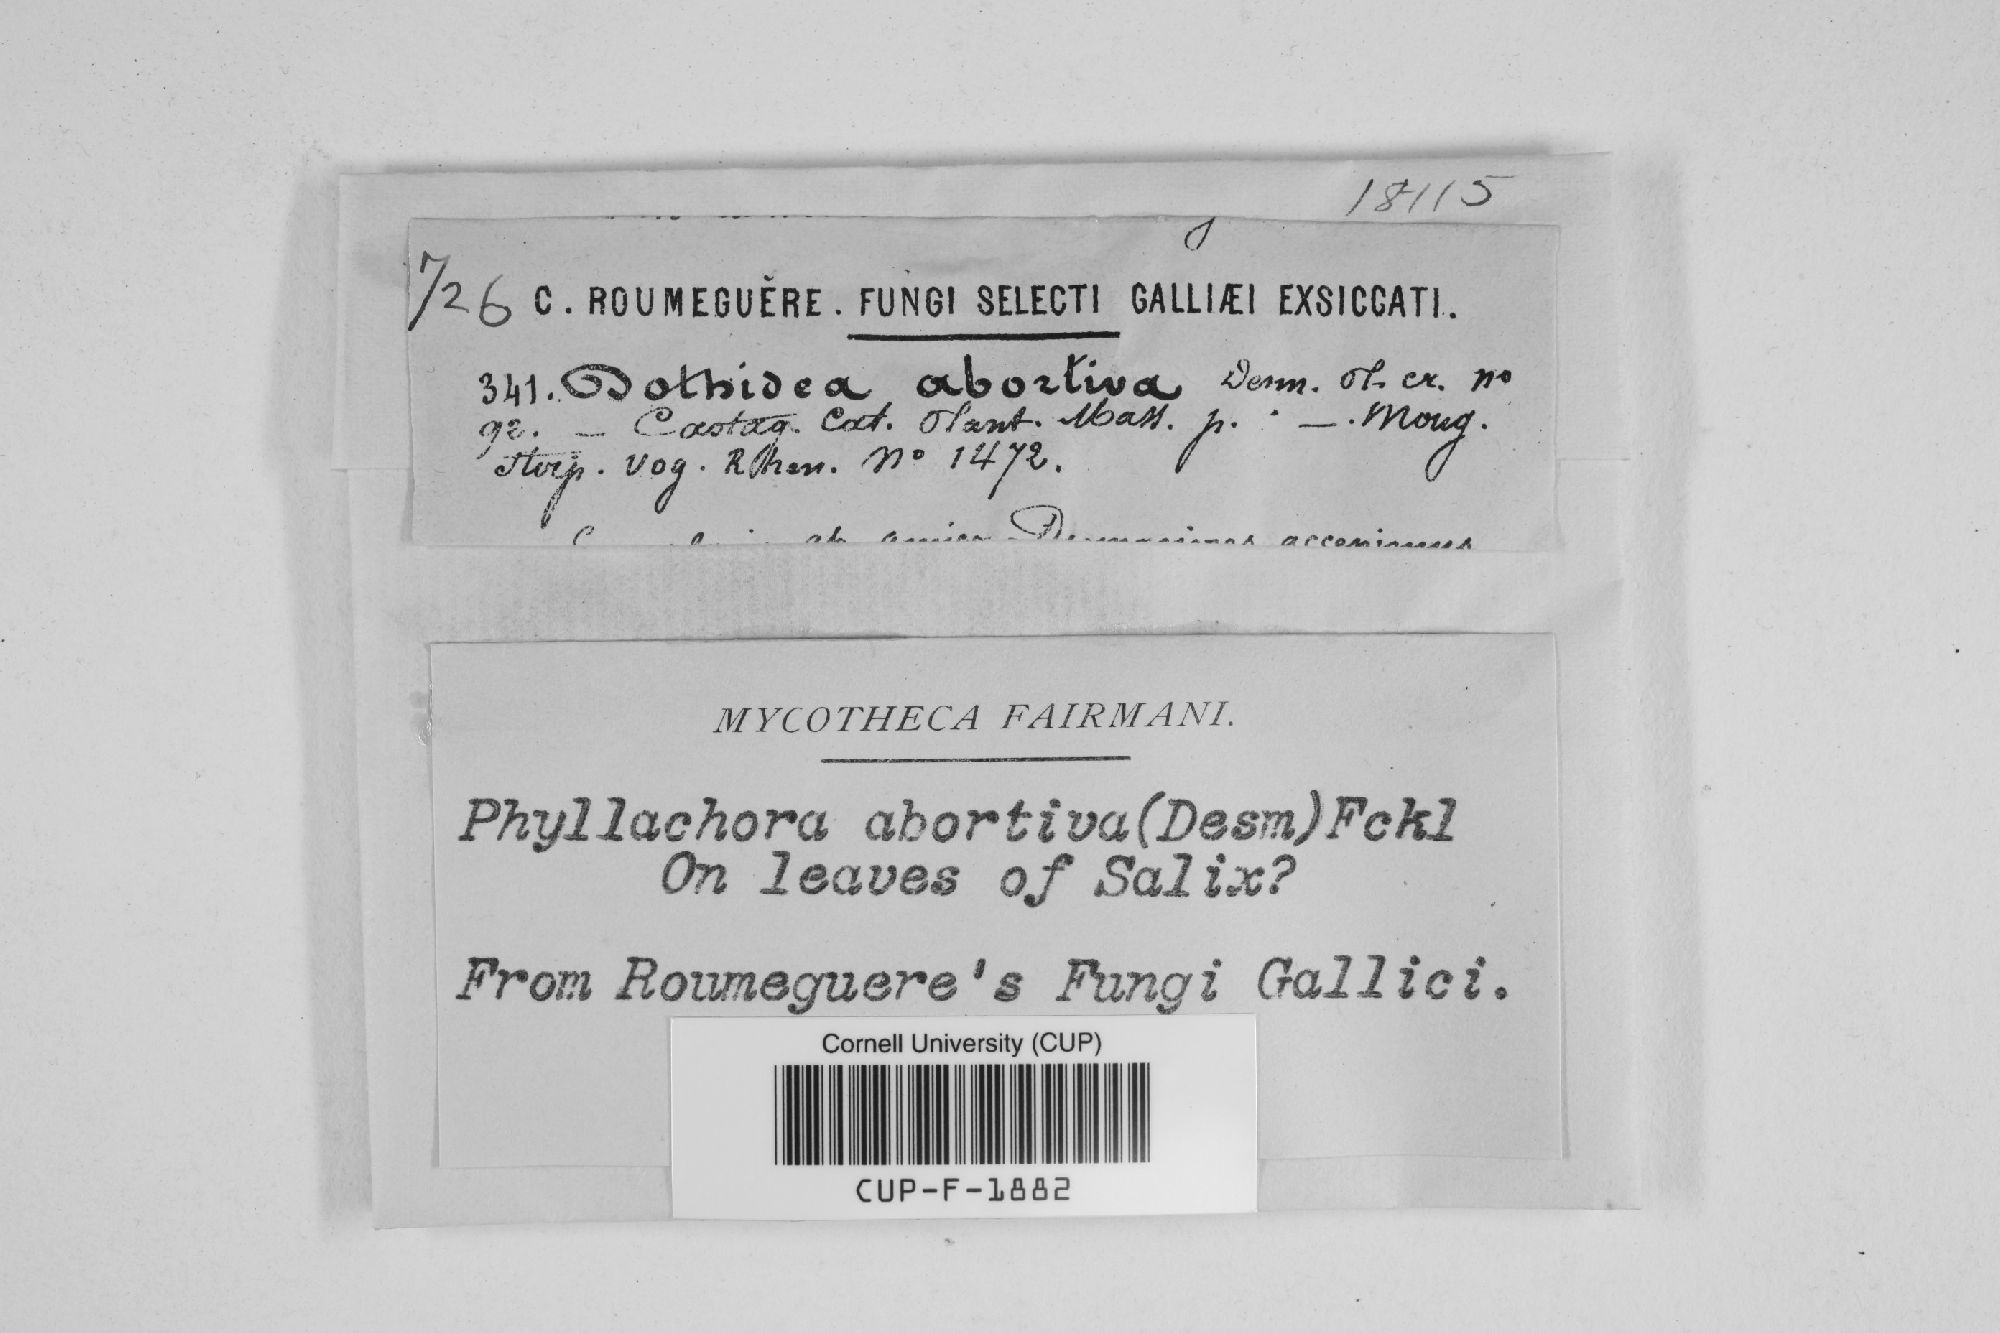 18115
726 C. ROUMEGUĔRE. FUNGI SELECTI GALLIÆI EXSICCATI.
341. Dothidea abortiva Desm. pl. cr. no
92. — Castag. Cat. plant. Mass. p. — . Moug.
Stirp. Vog. Rhen. No 1472.
ab amico Desmazieres accepimus
MYCOTHECA FAIRMANI.
Phyllachora abortiva(Desm)Fckl
On leaves of Salix?
From Roumeguere's Fungi Gallici.
Cornell University (CUP)
CUP-F-1882